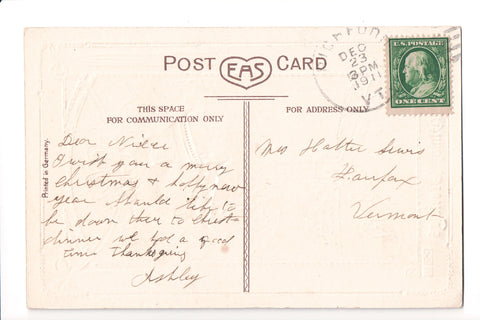 POST CARD
EAS
THIS SPACE
FOR COMMUNICATION ONLY
FOR ADDRESS ONLY
Printed in Germany.
DEC
23
3 PM
1911
VT
U.S. POSTAGE
ONE CENT
Dear Niece
I wish you a merry
Christmas + happy new
year should like to
be down ther to Christ
dinner we had a good
time thanksgiving
Ashley
Hattie Lewis
Fairfax
Vermont